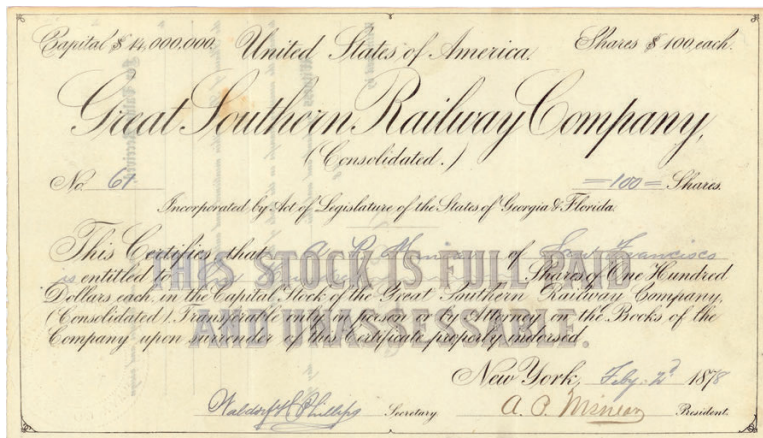 Capital $ 14,000,000. United States of America. Shares $ 100 each.
Great Southern Railway Company,
(Consolidated.)
No 61 =100= Shares.
Incorporated by Act of Legislature of the States of Georgia & Florida.
This Certifies that of San Francisco
is entitled to Shares of One Hundred
THIS STOCK IS FULL PAID
Dollars each, in the Capital Stock of the Great Southern Railway Company,
(Consolidated), Transferable only in person or by Attorney on the Books of the
AND UNASSESSABLE.
Company upon surrender of this Certificate properly indorsed.
New York, Feby. 2d 1878
Phillips Secretary A. P. President.